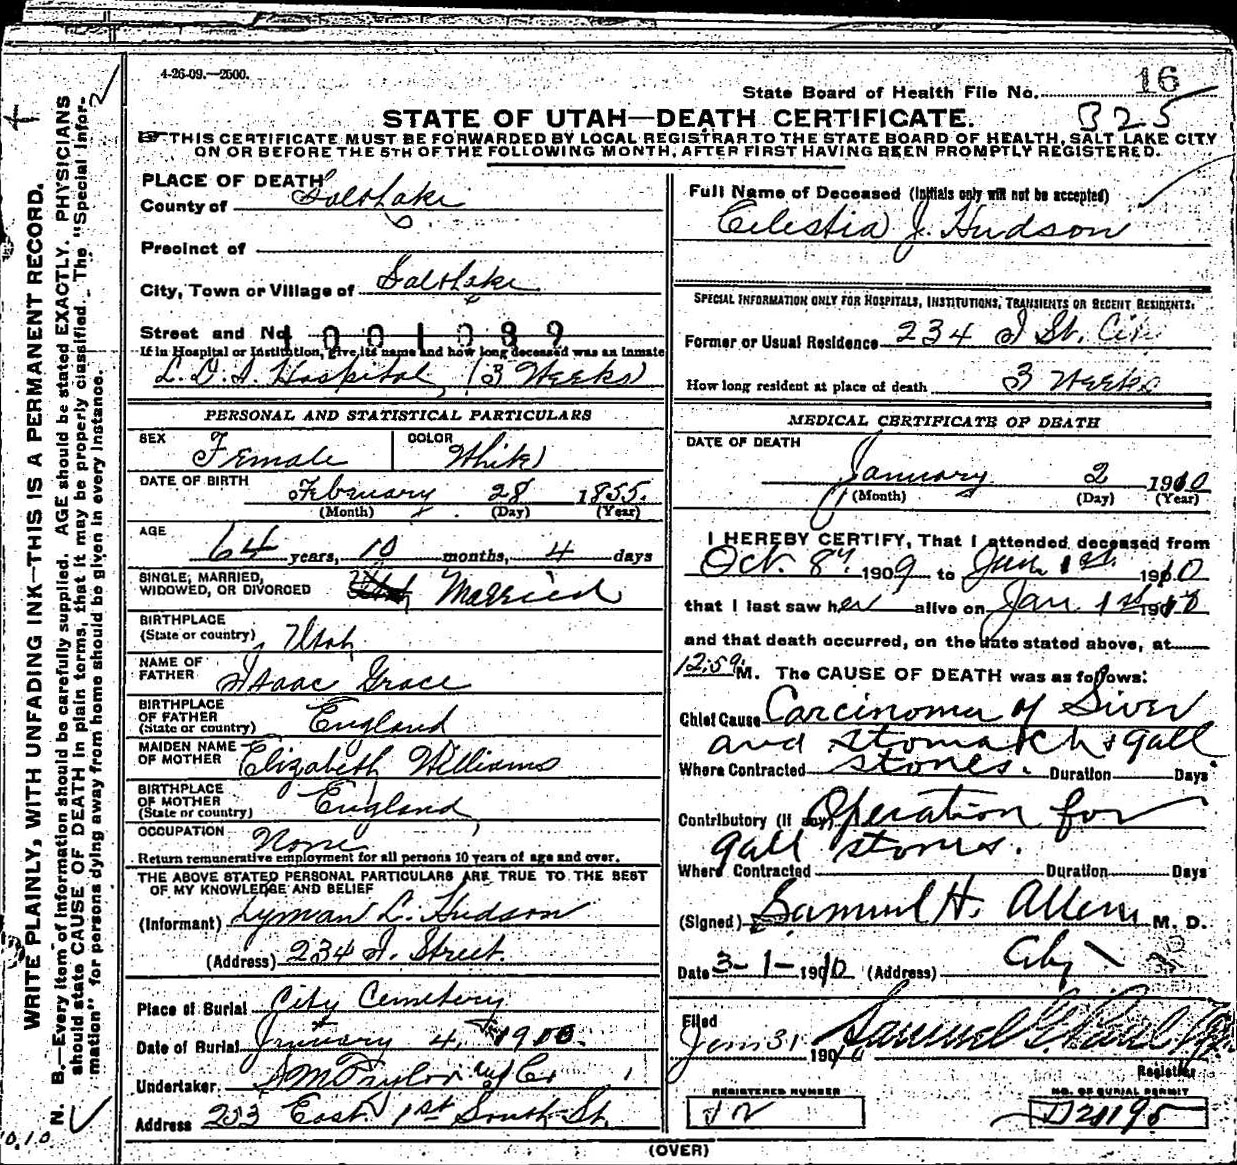 4-26-09.—2500.
State Board of Health File No. 16
325
STATE OF UTAH—DEATH CERTIFICATE.
THIS CERTIFICATE MUST BE FORWARDED BY LOCAL REGISTRAR TO THE STATE BOARD OF HEALTH, SALT LAKE CITY
ON OR BEFORE THE 5TH OF THE FOLLOWING MONTH, AFTER FIRST HAVING BEEN PROMPTLY REGISTERED.
WRITE PLAINLY, WITH UNFADING INK—THIS IS A PERMANENT RECORD.
N. B.—Every item of information should be carefully supplied. AGE should be stated EXACTLY. PHYSICIANS
should state CAUSE OF DEATH in plain terms, that it may be properly classified. The "Special Infor-
mation" for persons dying away from home should be given in every instance.
PLACE OF DEATH
County of Salt Lake
Precinct of
City, Town or Village of Salt Lake
Street and No. 1001089
If in Hospital or Institution, give its name and how long deceased was an inmate
L. D. S. Hospital (3 Weeks)
PERSONAL AND STATISTICAL PARTICULARS
SEX Female COLOR White
DATE OF BIRTH February 28 1855.
(Month) (Day) (Year)
AGE 64 years, 10 months, 4 days
SINGLE, MARRIED,
WIDOWED, OR DIVORCED Married
BIRTHPLACE
(State or country) Utah
NAME OF
FATHER Isaac Grace
BIRTHPLACE
OF FATHER
(State or country) England
MAIDEN NAME
OF MOTHER Elizabeth Williams
BIRTHPLACE
OF MOTHER
(State or country) England
OCCUPATION None
Return remunerative employment for all persons 10 years of age and over.
THE ABOVE STATED PERSONAL PARTICULARS ARE TRUE TO THE BEST
OF MY KNOWLEDGE AND BELIEF
(Informant) Lyman L. Hudson
(Address) 234 I. Street.
Place of Burial City Cemetery
Date of Burial January 4, 1910.
Undertaker S M Taylor & Co
Address 253 East 1st South St.
Full Name of Deceased (Initials only will not be accepted)
Celestia J. Hudson
SPECIAL INFORMATION ONLY FOR HOSPITALS, INSTITUTIONS, TRANSIENTS OR RECENT RESIDENTS.
Former or Usual Residence 234 I St. City
How long resident at place of death 3 Weeks
MEDICAL CERTIFICATE OF DEATH
DATE OF DEATH
January 2 1910
(Month) (Day) (Year)
I HEREBY CERTIFY, That I attended deceased from
Oct. 8th 1909 to Jan 1st 1910
that I last saw her alive on Jan 1st 1910
and that death occurred, on the date stated above, at
12:50 M. The CAUSE OF DEATH was as follows:
Chief Cause Carcinoma of Liver
and stomach & gall
stones.
Where Contracted Duration Days
Contributory (if any) Operation for
gall stones.
Where Contracted Duration Days
(Signed) Samuel H. Allen M. D.
Date 3-1-1910 (Address) City
Filed
Jan 31 1910 Samuel G. Paul
Registrar
REGISTERED NUMBER
NO. OF BURIAL PERMIT
D21195
(OVER)